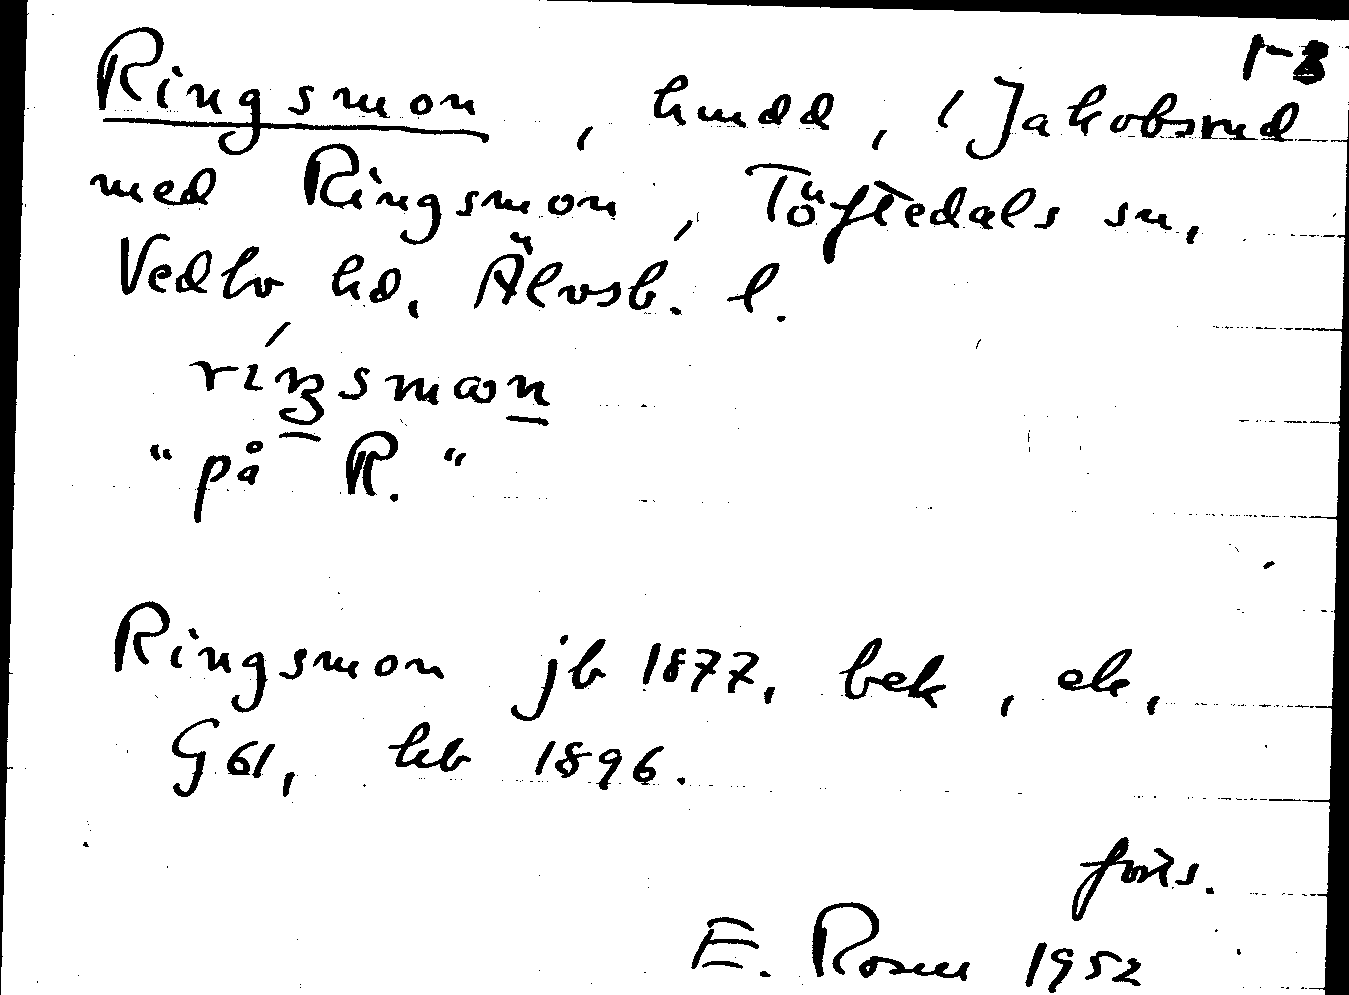 1-3
Ringsmon, hmdd, i Jakobsrud
med Ringsmon, Töftedals sn,
Vedbo hd, Älvsb. l.
ríŋsmɷn
"på R."
Ringsmon jb 1877, bek, ek,
G61, kb 1896.
forts.
E. Rosen 1952